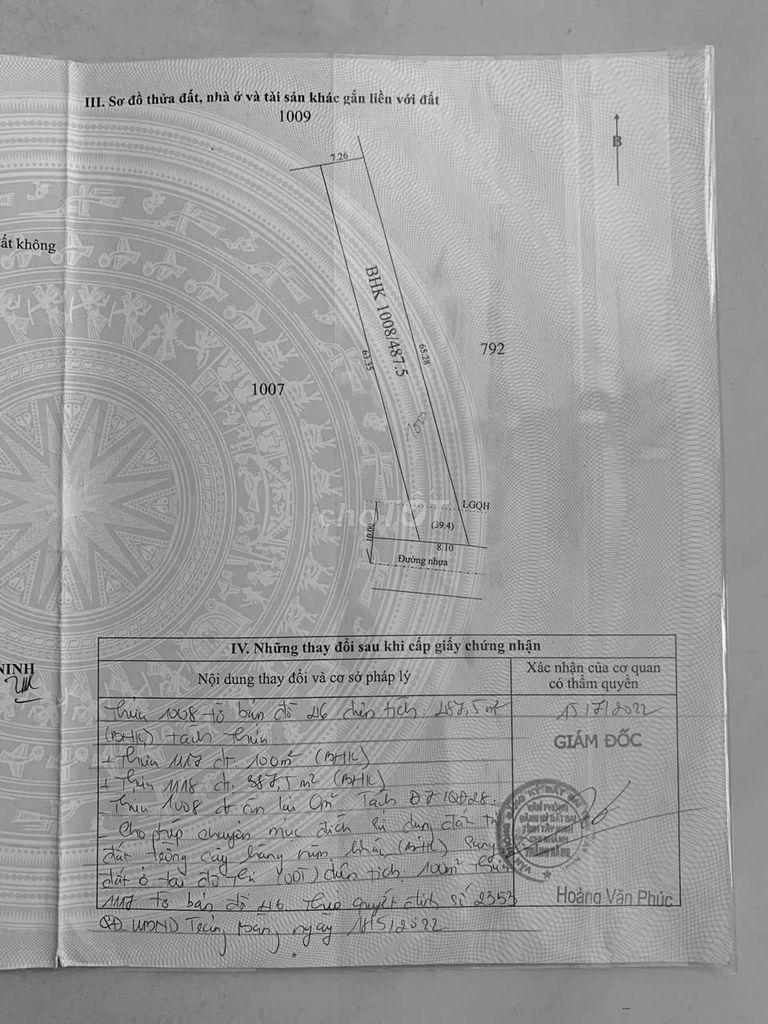 III. Sơ đồ thửa đất, nhà ở và tài sản khác gắn liền với đất
1009
7.26
B
ất không
BHK 1008/487.5
65.28
63.35
792
1007
100
LGQH
chợTỐT
(39.4)
10.00
8.10
Đường nhựa
IV. Những thay đổi sau khi cấp giấy chứng nhận
NINH
Nội dung thay đổi và cơ sở pháp lý
Xác nhận của cơ quan
có thẩm quyền
Thửa 1008 tờ bản đồ 46 diện tích 487,5m²
(BHK) tách thửa
15/7/2022
GIÁM ĐỐC
+ Thửa 1117 dt. 100m² (BHK)
+ Thửa 1118 dt. 387,5m² (BHK)
Thửa 1008 dt còn lại 0m²
- Cho phép chuyển mục đích sử dụng đất từ
đất trồng cây hàng năm khác (BHK) sang
đất ở tại đô thị (ODT) diện tích 100m² thửa
1117 tờ bản đồ 46 theo quyết định số 2353
QĐ. UBND Trảng Bàng ngày 18/5/2022
VĂN PHÒNG
ĐĂNG KÝ ĐẤT ĐAI
TỈNH TÂY NINH
CHI NHÁNH
TRẢNG BÀNG
Hoàng Văn Phúc